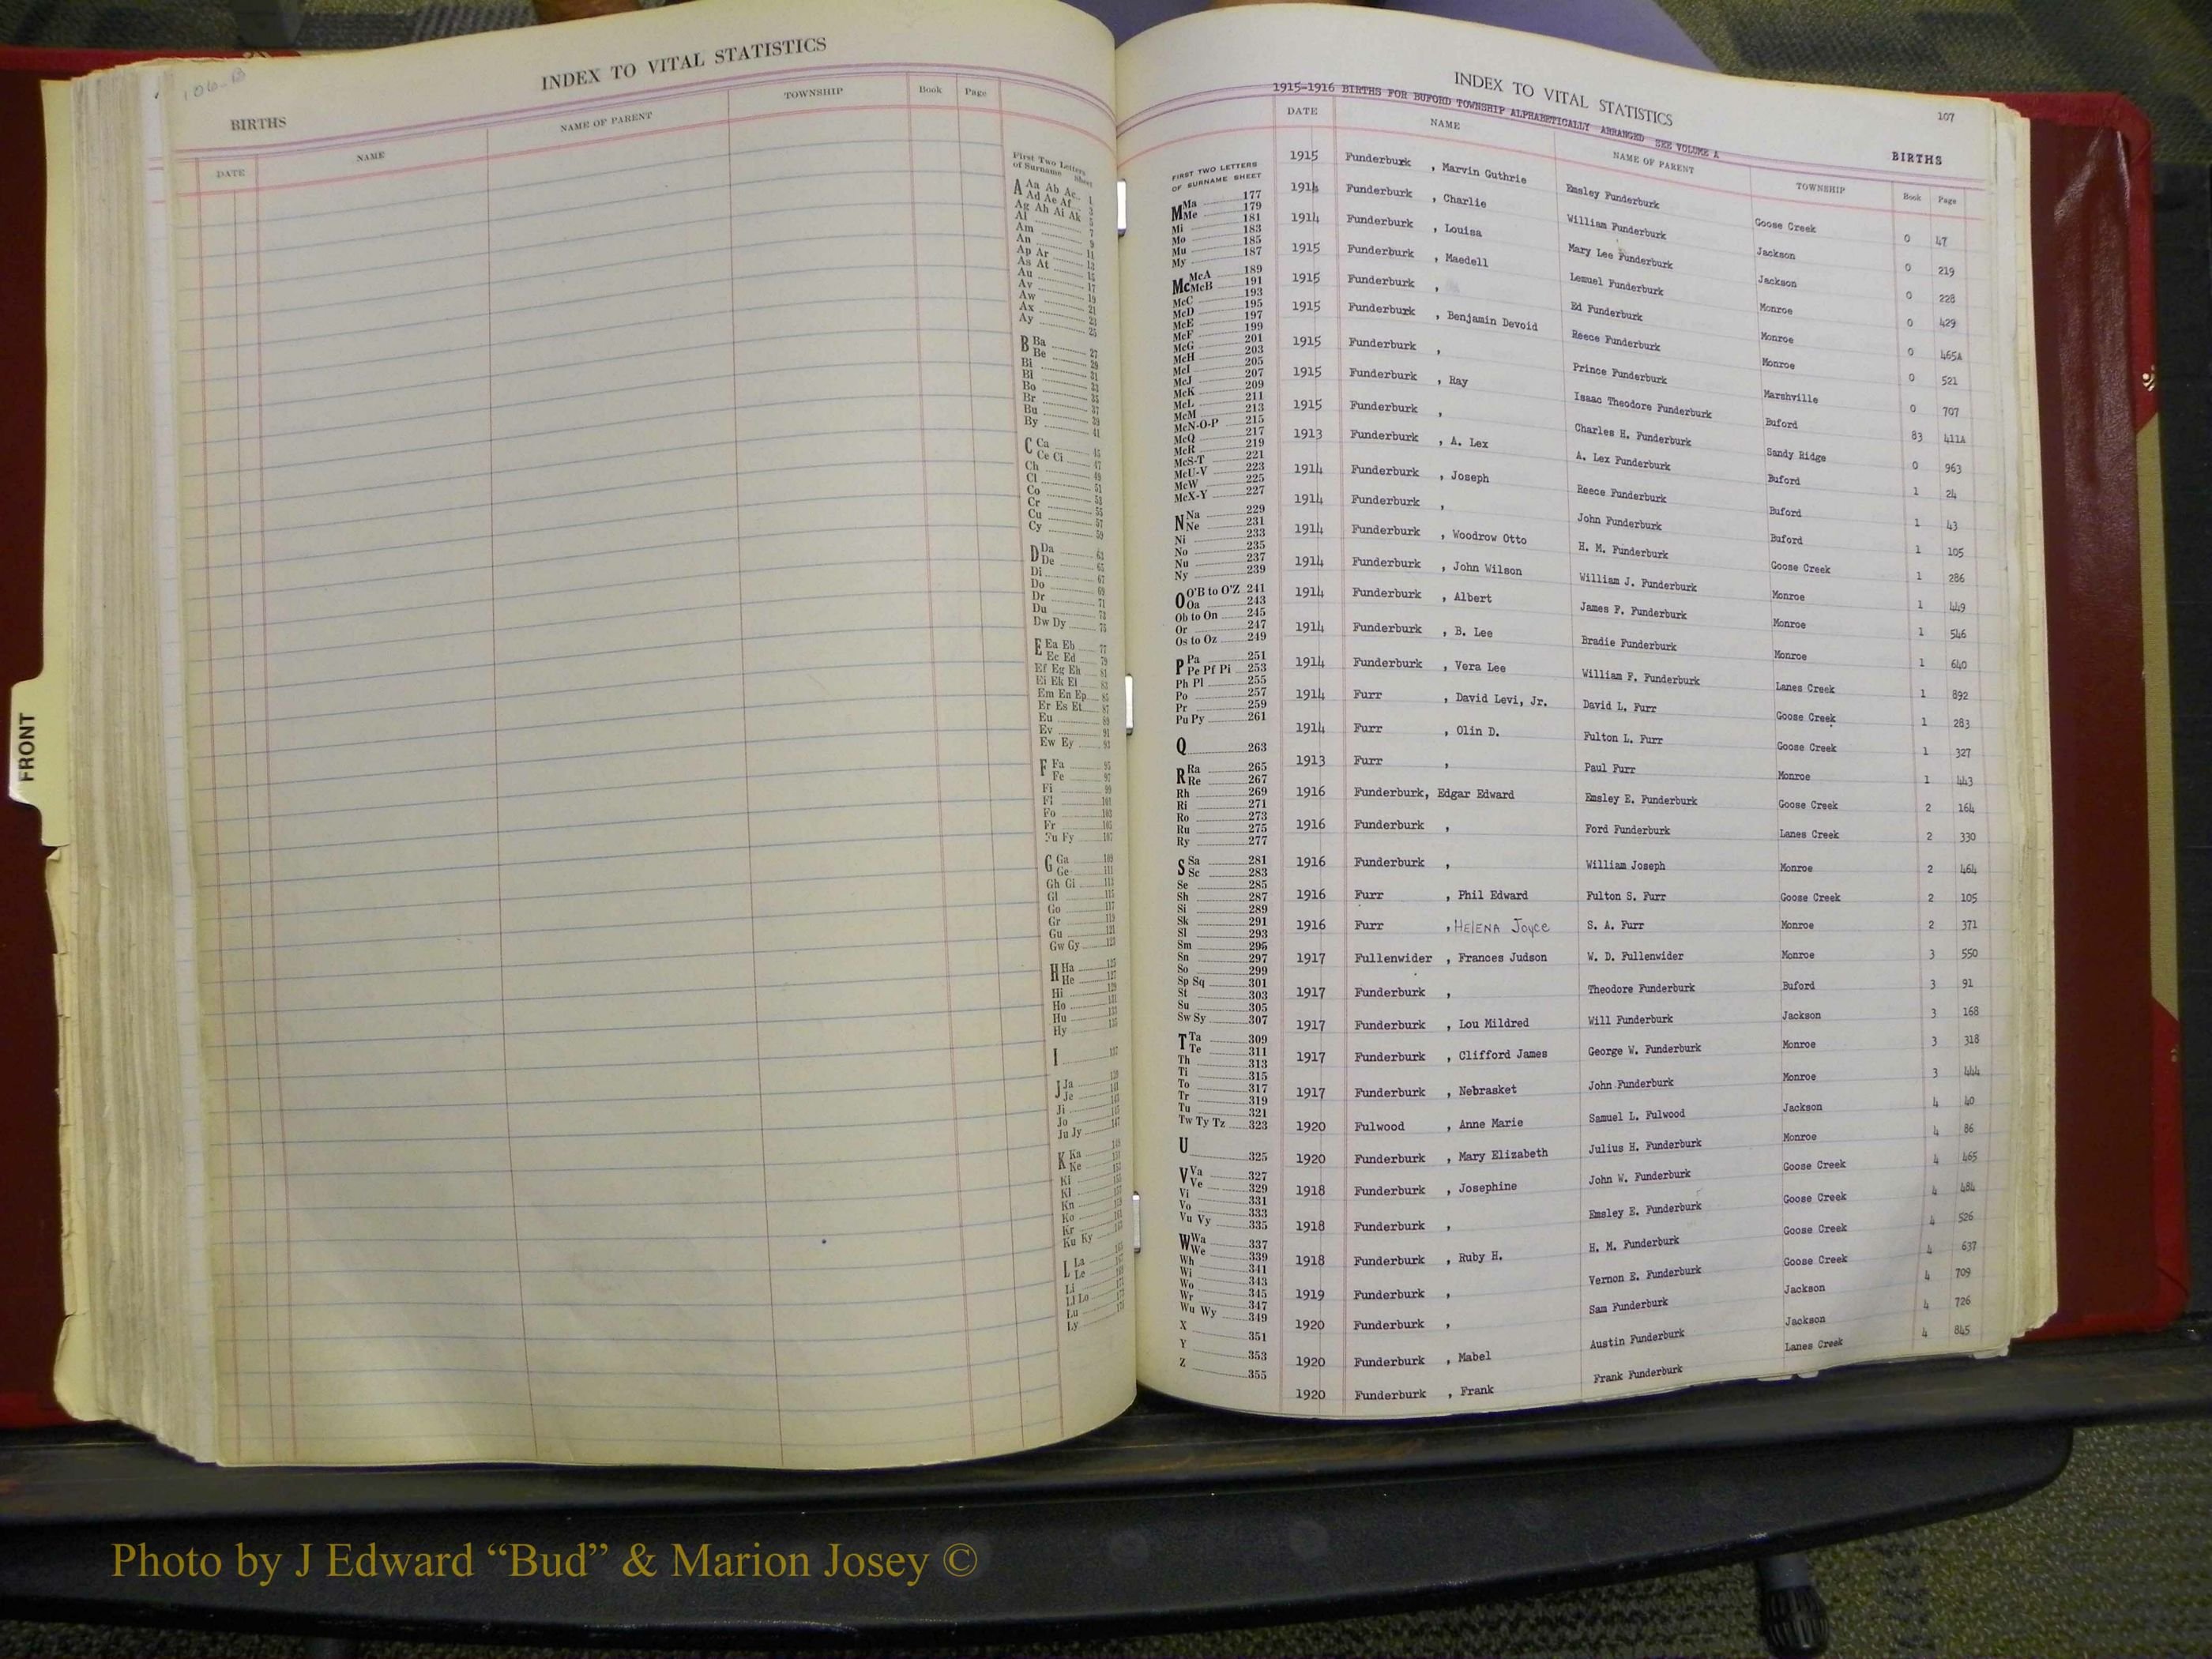 106-B
INDEX TO VITAL STATISTICS
BIRTHS
DATE NAME NAME OF PARENT TOWNSHIP Book Page
First Two Letters
of Surname Sheet
A Aa Ab Ac 1
Ad Ae Af 3
Ag Ah Ai Ak 5
Al 7
Am 9
An 11
Ap Ar 13
As At 15
Au 17
Av 19
Aw 21
Ax 23
Ay 25
B Ba 27
Be 29
Bi 31
Bl 33
Bo 35
Br 37
Bu 39
By 41
C Ca 45
Ce Ci 47
Ch 49
Cl 51
Co 53
Cr 55
Cu 57
Cy 59
D Da 63
De 65
Di 67
Do 69
Dr 71
Du 73
Dw Dy 75
E Ea Eb 77
Ec Ed 79
Ef Eg Eh 81
Ei Ek El 83
Em En Ep 85
Er Es Et 87
Eu 89
Ev 91
Ew Ey 93
F Fa 95
Fe 97
Fi 99
Fl 101
Fo 103
Fr 105
Fu Fy 107
G Ga 109
Ge 111
Gh Gi 113
Gl 115
Go 117
Gr 119
Gu 121
Gw Gy 123
H Ha 125
He 127
Hi 129
Ho 131
Hu 133
Hy 135
I 137
J Ja 139
Je 141
Ji 143
Jo 145
Ju Jy 147
K Ka 149
Ke 151
Ki
Kl
Kn
Ko
Kr
Ku Ky
L La
Le
Li
Ll Lo
Lu
Ly
INDEX TO VITAL STATISTICS
107
1915-1916 BIRTHS FOR BUFORD TOWNSHIP ALPHABETICALLY ARRANGED SEE VOLUME A
BIRTHS
FIRST TWO LETTERS
OF SURNAME SHEET
M Ma 177
Me 179
Mi 181
Mo 183
Mu 185
My 187
Mc McA 189
McB 191
McC 193
McD 195
McE 197
McF 199
McG 201
McH 203
McI 205
McJ 207
McK 209
McL 211
McM 213
McN-O-P 215
McQ 217
McR 219
McS-T 221
McU-V 223
McW 225
McX-Y 227
N Na 229
Ne 231
Ni 233
No 235
Nu 237
Ny 239
O O'B to O'Z 241
Oa 243
Ob to On 245
Or 247
Os to Oz 249
P Pa 251
Pe Pf Pi 253
Ph Pl 255
Po 257
Pr 259
Pu Py 261
Q 263
R Ra 265
Re 267
Rh 269
Ri 271
Ro 273
Ru 275
Ry 277
S Sa 281
Sc 283
Se 285
Sh 287
Si 289
Sk 291
Sl 293
Sm 295
Sn 297
So 299
Sp Sq 301
St 303
Su 305
Sw Sy 307
T Ta 309
Te 311
Th 313
Ti 315
To 317
Tr 319
Tu 321
Tw Ty Tz 323
U 325
V Va 327
Ve 329
Vi 331
Vo 333
Vu Vy 335
W Wa 337
We 339
Wh 341
Wi 343
Wo 345
Wr 347
Wu Wy 349
X 351
Y 353
Z 355
DATE NAME NAME OF PARENT TOWNSHIP Book Page
1915 Funderburk , Marvin Guthrie Emsley Funderburk Goose Creek 0 47
1914 Funderburk , Charlie William Funderburk Jackson 0 219
1914 Funderburk , Louisa Mary Lee Funderburk Jackson 0 228
1915 Funderburk , Maedell Lemuel Funderburk Monroe 0 429
1915 Funderburk , Ed Funderburk Monroe 0 465A
1915 Funderburk , Benjamin Devoid Reece Funderburk Monroe 0 521
1915 Funderburk , Prince Funderburk Marshville 0 707
1915 Funderburk , Ray Isaac Theodore Funderburk Buford 83 411A
1915 Funderburk , Charles H. Funderburk Sandy Ridge 0 963
1913 Funderburk , A. Lex A. Lex Funderburk Buford 1 24
1914 Funderburk , Joseph Reece Funderburk Buford 1 43
1914 Funderburk , John Funderburk Buford 1 105
1914 Funderburk , Woodrow Otto H. M. Funderburk Goose Creek 1 286
1914 Funderburk , John Wilson William J. Funderburk Monroe 1 449
1914 Funderburk , Albert James F. Funderburk Monroe 1 546
1914 Funderburk , B. Lee Bradie Funderburk Monroe 1 640
1914 Funderburk , Vera Lee William F. Funderburk Lanes Creek 1 892
1914 Furr , David Levi, Jr. David L. Furr Goose Creek 1 283
1914 Furr , Olin D. Fulton L. Furr Goose Creek 1 327
1913 Furr , Paul Furr Monroe 1 443
1916 Funderburk, Edgar Edward Emsley E. Funderburk Goose Creek 2 164
1916 Funderburk , Ford Funderburk Lanes Creek 2 330
1916 Funderburk , William Joseph Monroe 2 464
1916 Furr , Phil Edward Fulton S. Furr Goose Creek 2 105
1916 Furr , HELENA Joyce S. A. Furr Monroe 2 371
1917 Fullenwider , Frances Judson W. D. Fullenwider Monroe 3 550
1917 Funderburk , Theodore Funderburk Buford 3 91
1917 Funderburk , Lou Mildred Will Funderburk Jackson 3 168
1917 Funderburk , Clifford James George W. Funderburk Monroe 3 318
1917 Funderburk , Nebrasket John Funderburk Monroe 3 444
1920 Fulwood , Anne Marie Samuel L. Fulwood Jackson 4 40
1920 Funderburk , Mary Elizabeth Julius H. Funderburk Monroe 4 86
1918 Funderburk , Josephine John W. Funderburk Goose Creek 4 465
1918 Funderburk , Emsley E. Funderburk Goose Creek 4 484
1918 Funderburk , Ruby H. H. M. Funderburk Goose Creek 4 526
1919 Funderburk , Vernon E. Funderburk Goose Creek 4 637
1920 Funderburk , Sam Funderburk Jackson 4 709
1920 Funderburk , Mabel Austin Funderburk Jackson 4 726
1920 Funderburk , Frank Frank Funderburk Lanes Creek 4 845
FRONT
Photo by J Edward “Bud” & Marion Josey ©